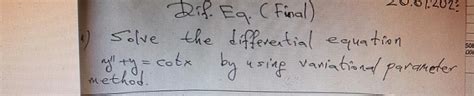 Dif. Eq. (Final)
Solve the differential equation
y'' + y = cotx by using variational parameter
method.